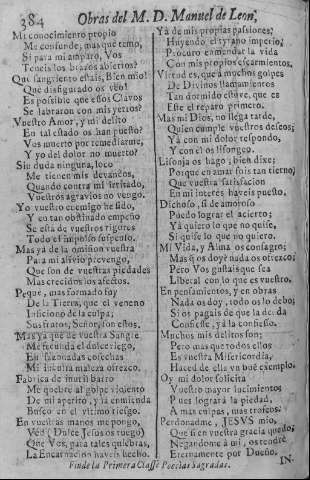 384 Obras del M. D. Manuel de Leon,
Mi conocimiento propio
Me confunde, mas que temo,
Si para mi amparo, Vos
Teneis los braços abiertos?
Que sangriento estais, Bien mio!
Que disfigurado os veo!
Es possible que essos Clavos
Se labraron con mis yerros?
Vuestro Amor, y mi delito
En tal estado os han puesto?
Vos muerto por remediarme,
Y yo del dolor no muerto?
Sin duda ninguna, loco
Me tienen mis devaneos,
Quando contra mi irritado,
Vuestros agravios no vengo.
Yo vuestro enemigo he sido,
Y en tan obstinado empeño
Se esta de vuestros rigores
Todo el impulso suspenso.
Mas ya de la omission vuestra
Para mi alivio prevengo,
Que son de vuestras piedades
Mas crecidos los afectos.
Pequè, mas formado fuy
De la Tierra, que el veneno
Inficionó de la culpa;
Sus frutos, Señor, son estos,
Mas ya que de vuestra Sangre
Me fecunda el dulce riego,
En sazonadas cosechas
Mi inculta maleza ofrezco.
Fabrica de inutil barro
Me quebre al golpe violento
De mi apetito, y la enmienda
Busco en el vltimo riesgo.
En vuestras manos me pongo,
Vèd (Dulce Jesus os ruego)
Que Vos, para tales quiebras,
La Encarnacion haveis hecho.
Yà de mis propias passiones,
Huyendo el tyrano imperio,
Procuro enmendar la vida
Con mis propios escarmientos.
Virtud es, que à muchos golpes
De Divinos llamamientos
Tan dormido estuve, que es
Este el reparo primero.
Mas mi Dios, no llega tarde,
Quien cumple vuestros deseos;
Yà con mi dolor respondo,
Y con el os lisongeo.
Lisonja os hago; bien dixe;
Porque en amar sois tan tierno,
Que vuestra satisfacion
En mi interès haveis puesto.
Dichoso, si de amoroso
Puedo lograr el acierto;
Yà quiero lo que no quise,
Si quise lo que no quiero.
Mi Vida, y Alma os consagro;
Mas què os doy? nada os ofrezco;
Pero Vos gustais que sea
Liberal con lo que es vuestro.
En pensamientos, y en obras
Nada os doy, todo os lo debo;
Si os pagais de que la deuda
Confiesse, yà la confiesso.
Muchos mis delitos son;
Pero mas que todos ellos
Es vuestra Misericordia,
Haced de ella un buè exemplo.
Oy mi dolor solicita
Vuestro mayor lucimiento;
Pues logrará la piedad,
A mas culpas, mas trofeos.
Perdonadme, JESVS mio,
Que si en vuestra gracia quedo,
Negandome à mi, os tendrè
Eternamente por Dueño.
Finde la Primera Classè Poesias Sagradas. IN-